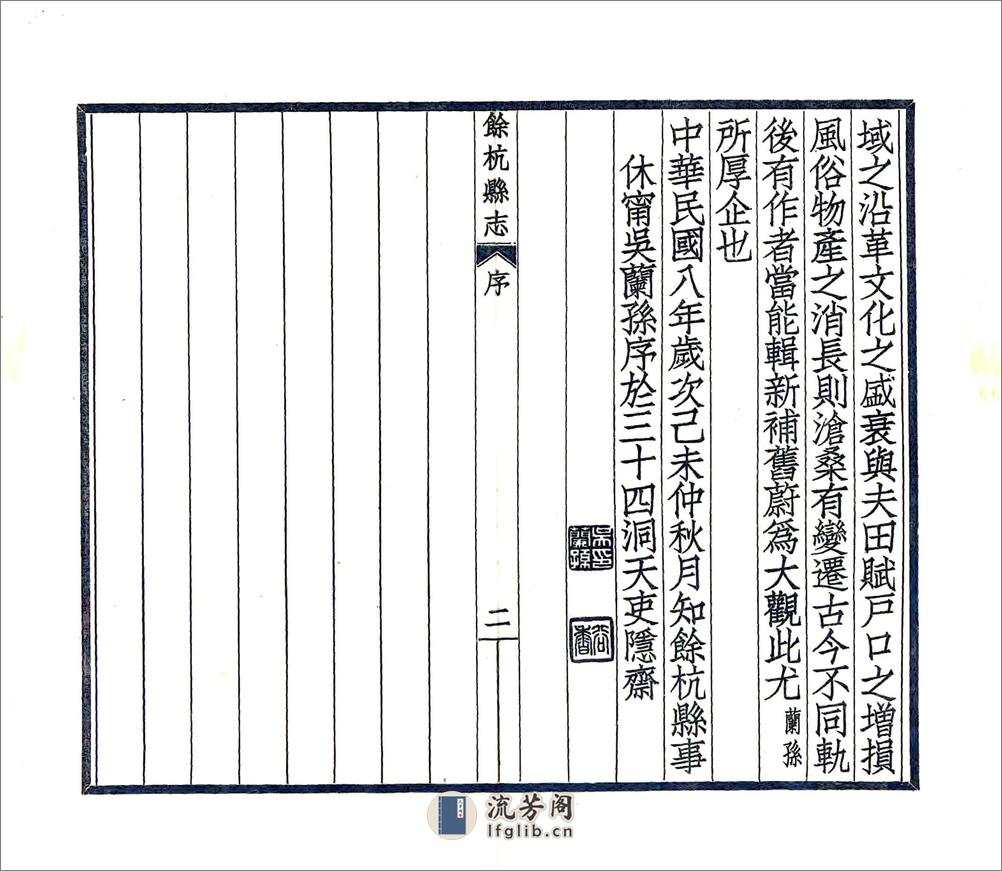 域之沿革文化之盛衰與夫田賦戸口之增損
風俗物產之消長則滄桑有變遷古今不同軌
後有作者當能輯新補舊蔚爲大觀此尤蘭孫
所厚企也
中華民國八年歲次己未仲秋月知餘杭縣事
休甯吳蘭孫序於三十四洞天吏隱齋
吳印蘭孫
餘杭縣志
序
二
流芳阁
lfglib.cn